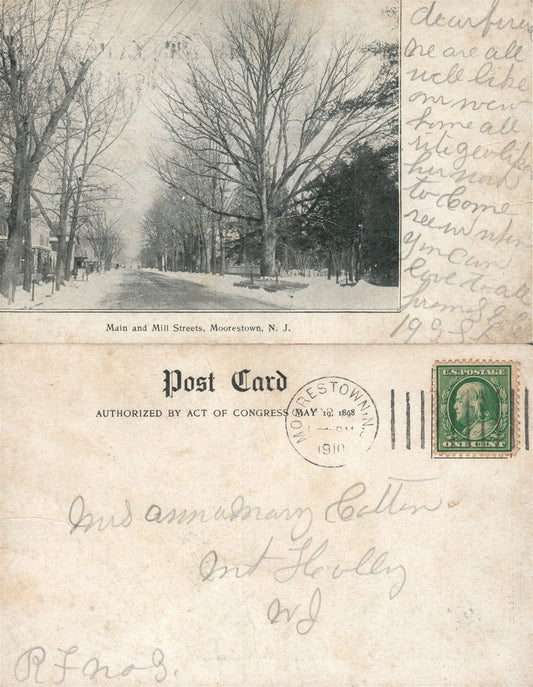 dear frien
we are all
well like
our new
home all
right like
her
to Come
see
you Can
love to all
from
190
Main and Mill Streets, Moorestown, N. J.
Post Card
AUTHORIZED BY ACT OF CONGRESS MAY 19, 1898
MOORESTOWN, N.J.
PM
1910
U.S. POSTAGE
ONE CENT
Mrs annamary Cotten
Mt Holly
NJ
R F no 3.